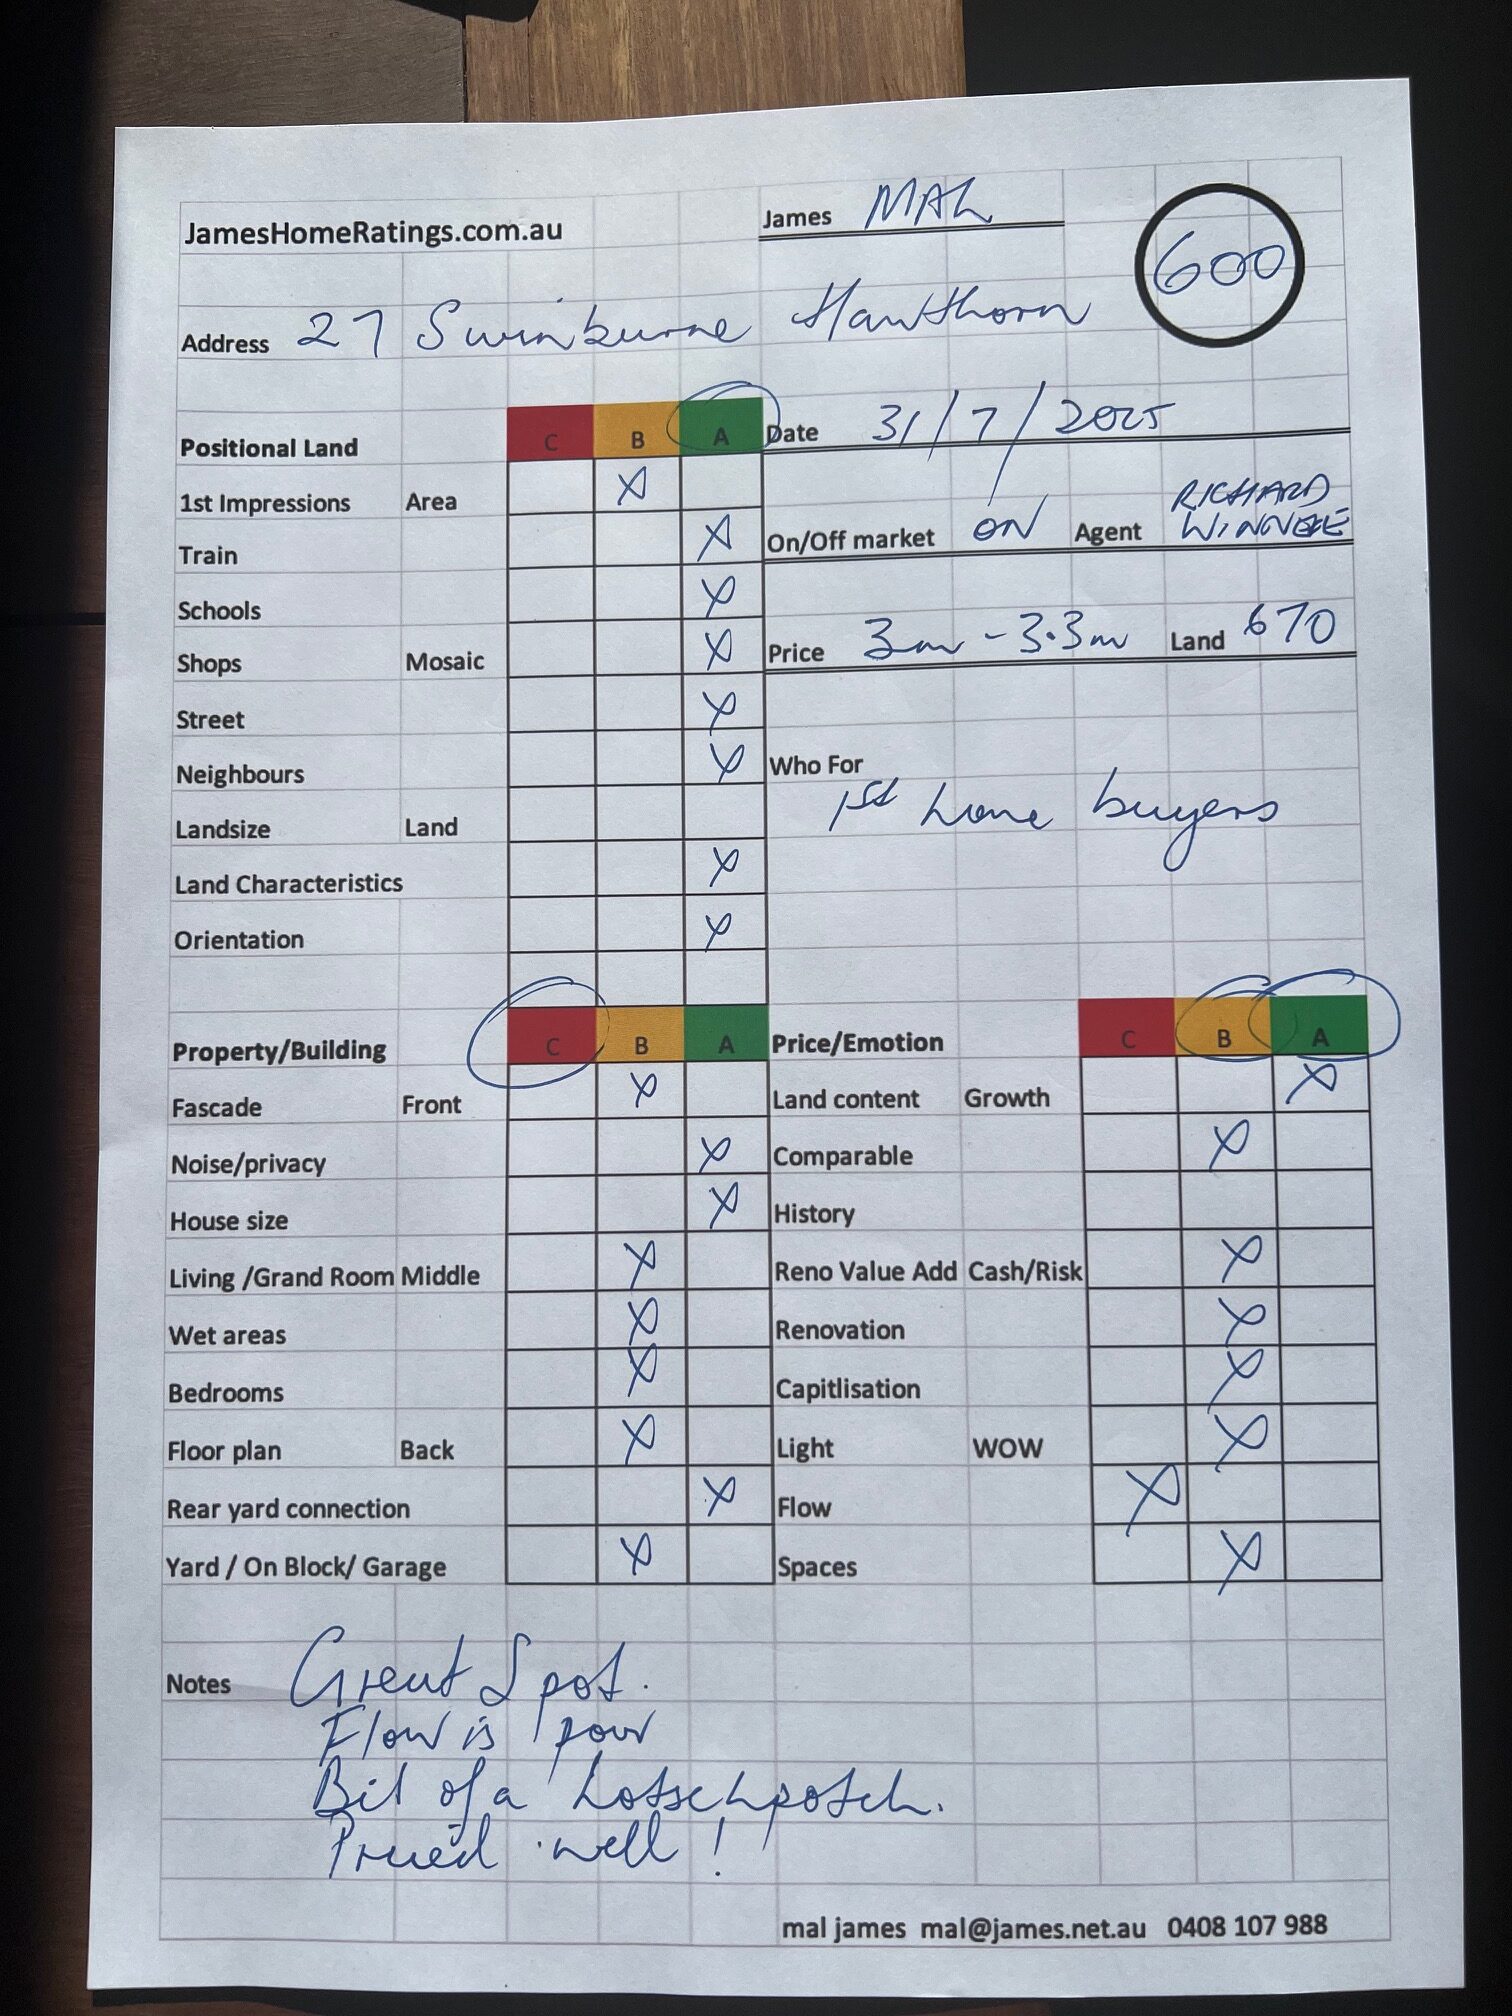 JamesHomeRatings.com.au James MAL 600
Address 27 Swinburne Hawthorn
Positional Land C B A Date 31/7/2025
1st Impressions Area X
Train X On/Off market ON Agent RICHARD WINNEKE
Schools X
Shops Mosaic X Price 3m - 3.3m Land 670
Street X
Neighbours X Who For
1st home buyers
Landsize Land
Land Characteristics X
Orientation X
Property/Building C B A Price/Emotion C B A
Fascade Front X Land content Growth X
Noise/privacy X Comparable X
House size X History
Living /Grand Room Middle X Reno Value Add Cash/Risk X
Wet areas X Renovation X
Bedrooms X Capitlisation X
Floor plan Back X Light WOW X
Rear yard connection X Flow X
Yard / On Block/ Garage X Spaces X
Notes Great Spot.
Flow is poor
Bit of a hotschpotch.
Priced well!
mal james mal@james.net.au 0408 107 988